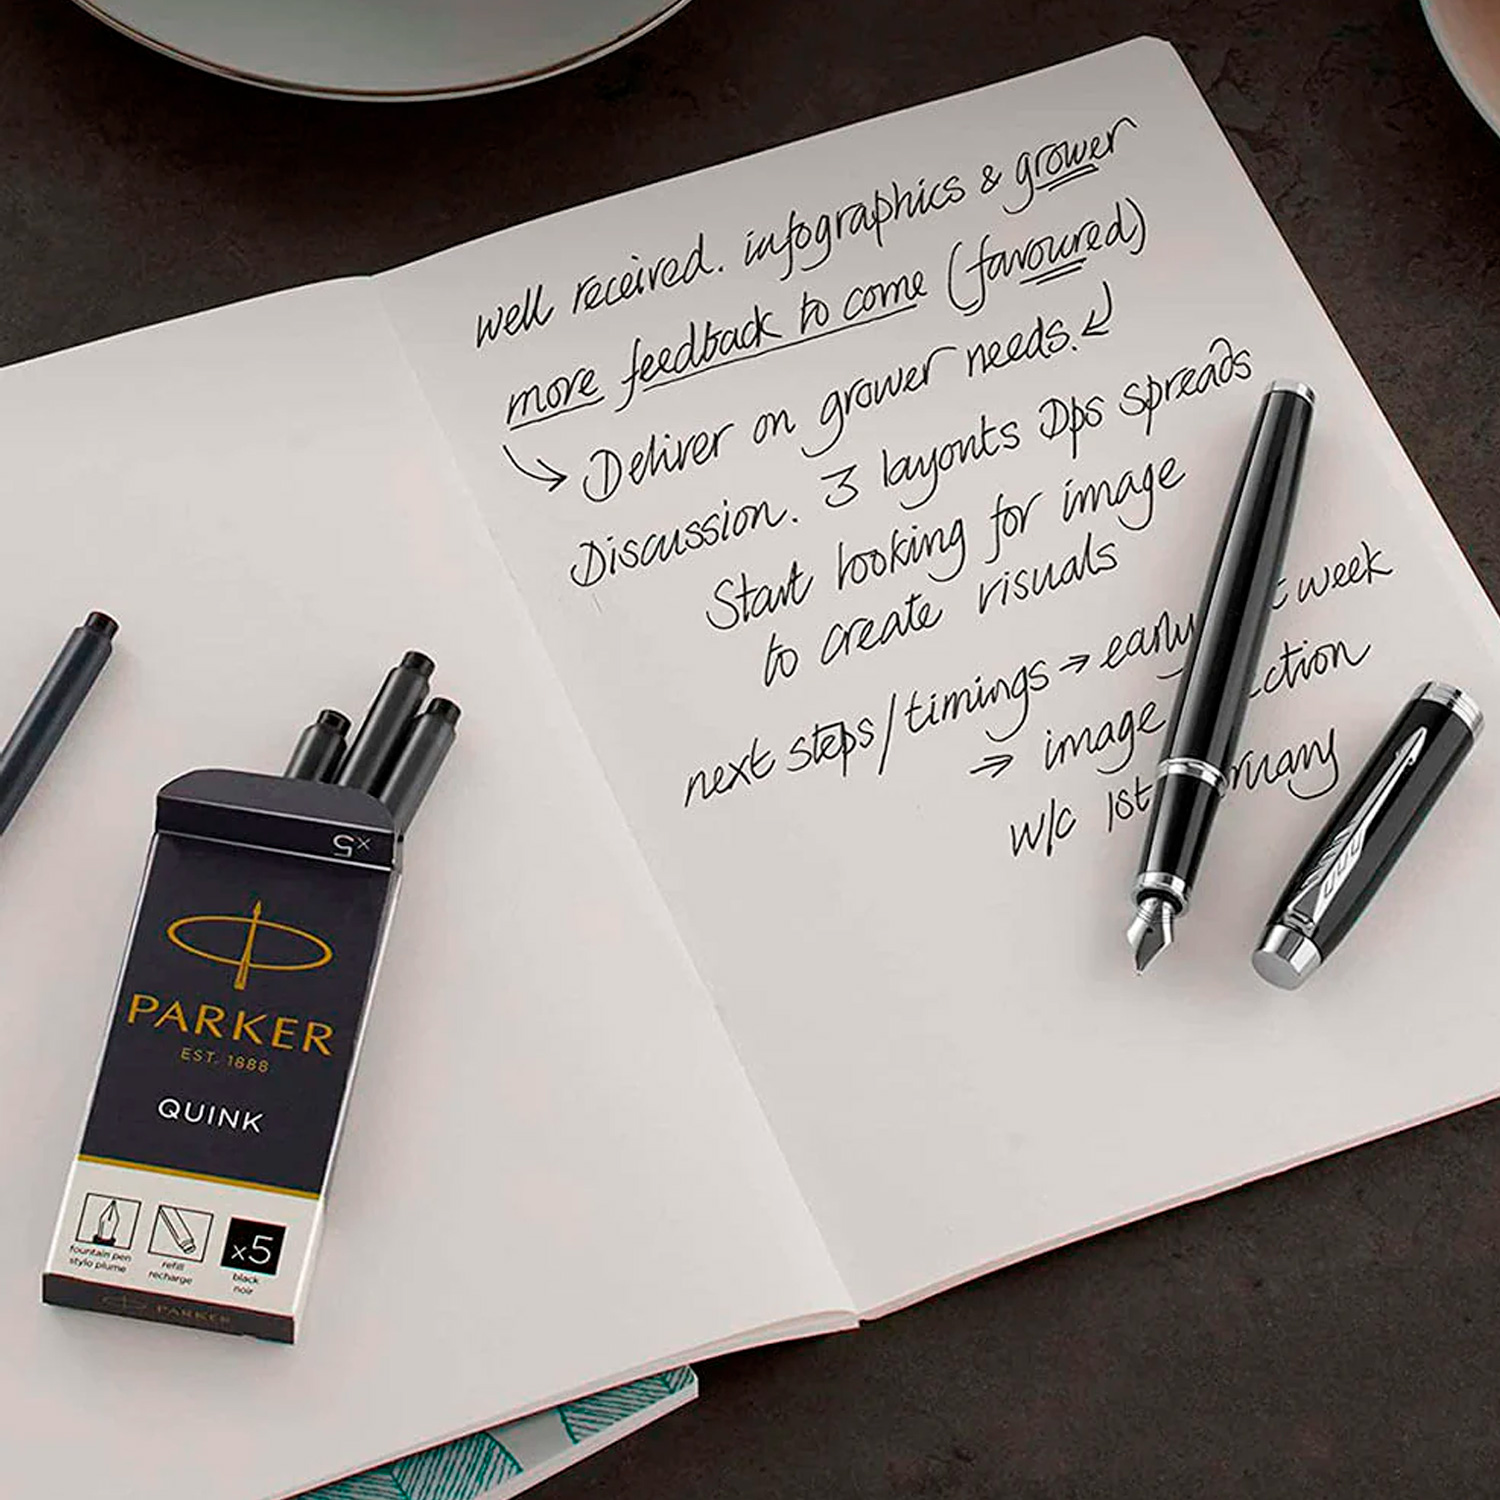 well received. infographics & grower
more feedback to come (favoured)
Deliver on grower needs.
Discussion. 3 layouts Dps spreads
Start looking for image
to create visuals
next steps / timings → early week
⇒ image
w/c 1st
x5
PARKER
EST. 1888
QUINK
fountain pen
stylo plume
refill
recharge
x5
black
noir
PARKER